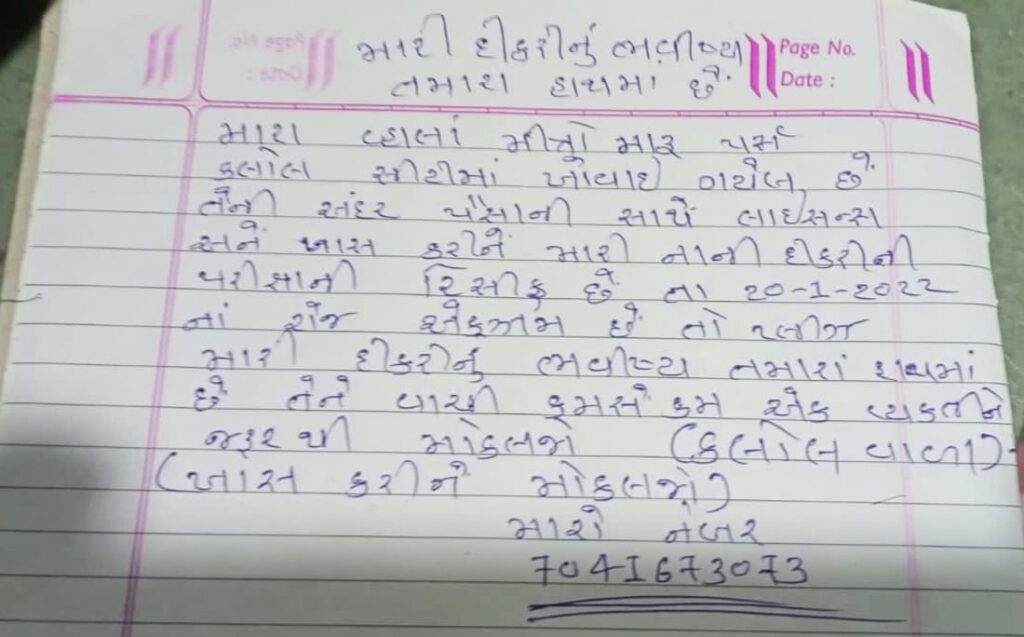 મારી દીકરીનું ભવીષ્ય
તમારા હાથમાં છે.
Page No.
Date :
મારા વ્હાલાં મીત્રો મારૂ પર્સ
કલોલ સીટીમાં ખોવાઈ ગયેલ છે.
તેની અંદર પૈસાની સાથે લાઈસન્સ
અને ખાસ કરીને મારી નાની દીકરીની
પરીક્ષાની રિસીફ છે તા 20-1-2022
નાં રોજ એકઝામ છે તો પ્લીઝ
મારી દીકરીનું ભવીષ્ય તમારાં હાથમાં
છે તેને વાચી કમસે કમ એક વ્યકતીને
જરૂર થી મોકલજો (કલોલ વાળા)
(ખાસ કરીને મોકલજો)
મારો નંબર
7041673073